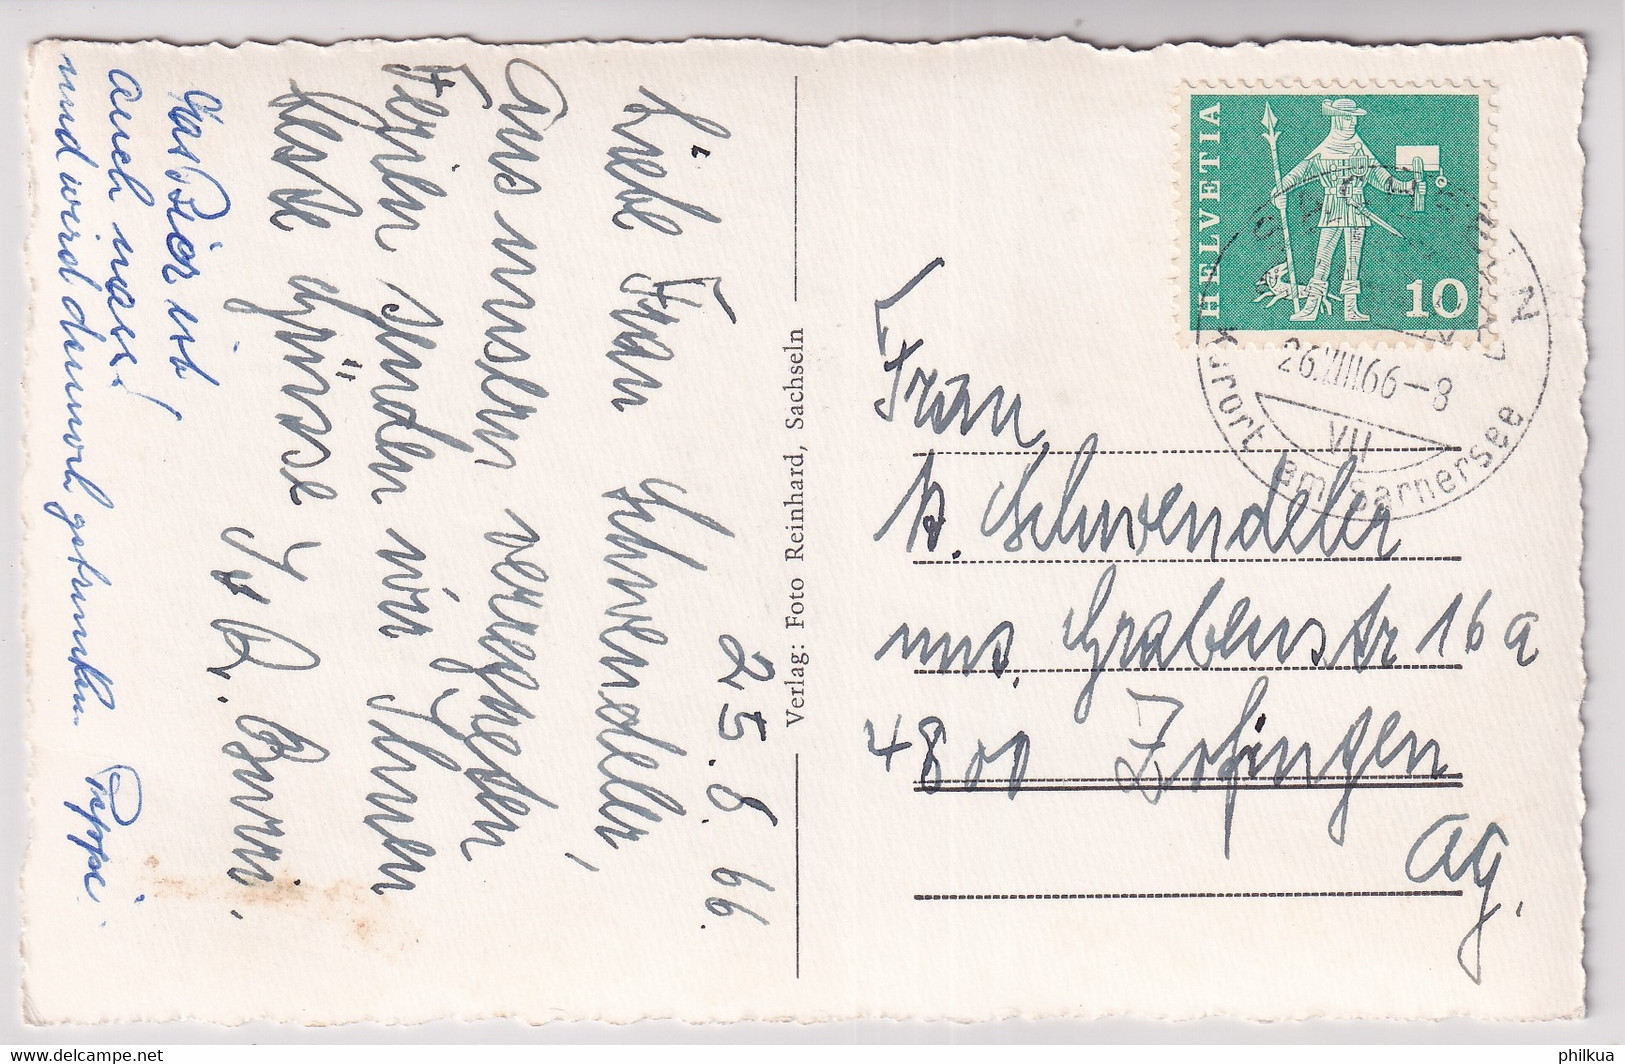 25.8.66.
Liebe Frau Schwendeler,
Aus unsern verregneten
Ferien senden wir Ihnen
beste Grüsse
Is R. Burri.
Das Bier ist
auch nass!
und wird dennoch getrunken. Pappi.
Verlag: Foto Reinhard, Sachseln
HELVETIA
HELVETIA
10
SACHSELN
26.VIII.66-8
VII
Kurort am Sarnersee
Frau
B. Schwendeler
uns. Grabenstr 16a
4800 Zofingen
Ag.
philkua.delcampe.net
philkua